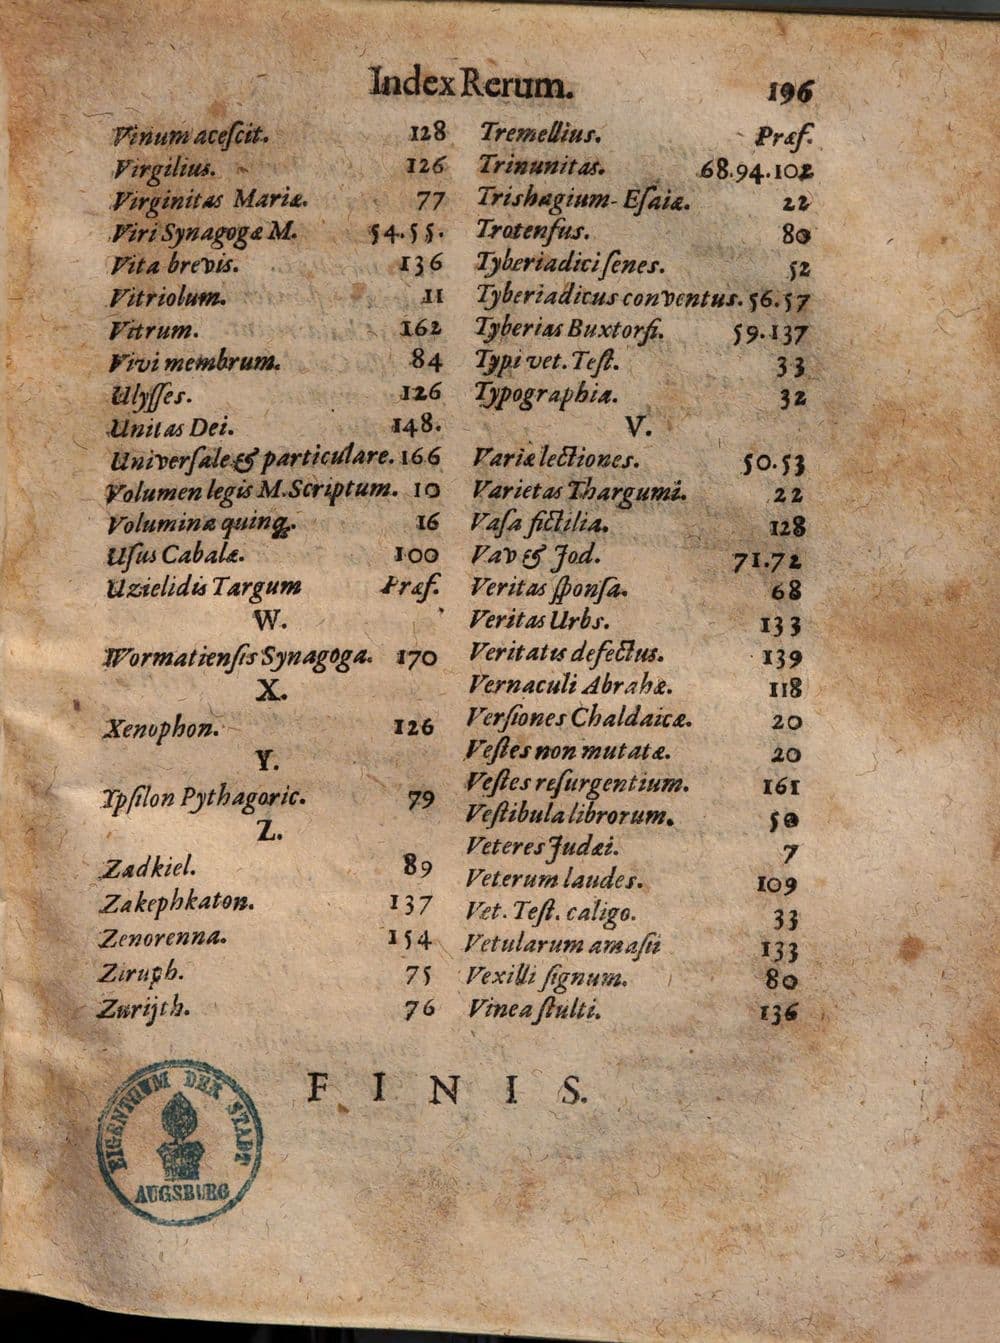 Index Rerum. 196
Tremellius. Præf.
Trinunitas. 68.94.102
Trishagium-Eſaiæ. 22
Trotenſus. 80
Tyberiadici ſenes. 52
Tyberiadicus conventus. 56.57
Tyberias Buxtorfi. 59.137
Typi vet. Teſt. 33
Typographia. 32
V.
Variæ lectiones. 50.53
Varietas Thargumi. 22
Vaſa fictilia. 128
Vav & Jod. 71.72
Veritas ſponſa. 68
Veritas Urbs. 133
Veritatis defectus. 139
Vernaculi Abrahæ. 118
Verſiones Chaldaicæ. 20
Veſtes non mutatæ. 20
Veſtes reſurgentium. 161
Veſtibula librorum. 50
Veteres Judæi. 7
Veterum laudes. 109
Vet. Teſt. caligo. 33
Vetularum amaſii 133
Vexilli ſignum. 80
Vinea ſtulti. 136
Vinum aceſcit. 128
Virgilius. 126
Virginitas Mariæ. 77
Viri Synagogæ M. 54.55.
Vita brevis. 136
Vitriolum. 11
Vitrum. 162
Vivi membrum. 84
Ulyſſes. 126
Unitas Dei. 148.
Univerſale & particulare. 166
Volumen legis M.Scriptum. 10
Volumina quinq. 16
Uſus Cabalæ. 100
Uzielidis Targum Præf.
W.
Wormatienſis Synagoga. 170
X.
Xenophon. 126
Y.
Ypſilon Pythagoric. 79
Z.
Zadkiel. 89
Zakephkaton. 137
Zenorenna. 154
Ziruph. 75
Zurijth. 76
FINIS.
EIGENTHUM DER STADT
AUGSBURG